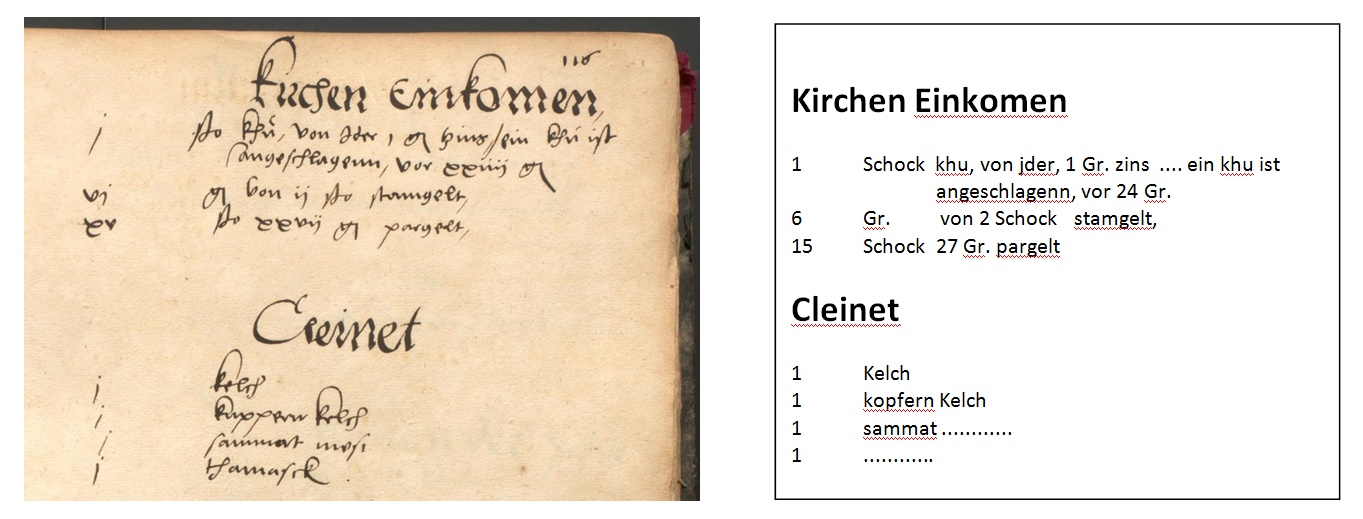 116
Kirchen Einkomen,
j ßo khu, von Jder 1 gr zins, ein khu ist
angeschlagenn, vor xxiiij gr
vi gr von ij ßo stamgelt,
xv ßo xxvij gr pargelt,
Cleinet
j kelch
j kuppern kelch
j sammat
j thamasck
Kirchen Einkomen
1 Schock khu, von jder, 1 Gr. zins .... ein khu ist
angeschlagenn, vor 24 Gr.
6 Gr. von 2 Schock stamgelt,
15 Schock 27 Gr. pargelt
Cleinet
1 Kelch
1 kopfern Kelch
1 sammat ............
1 ............